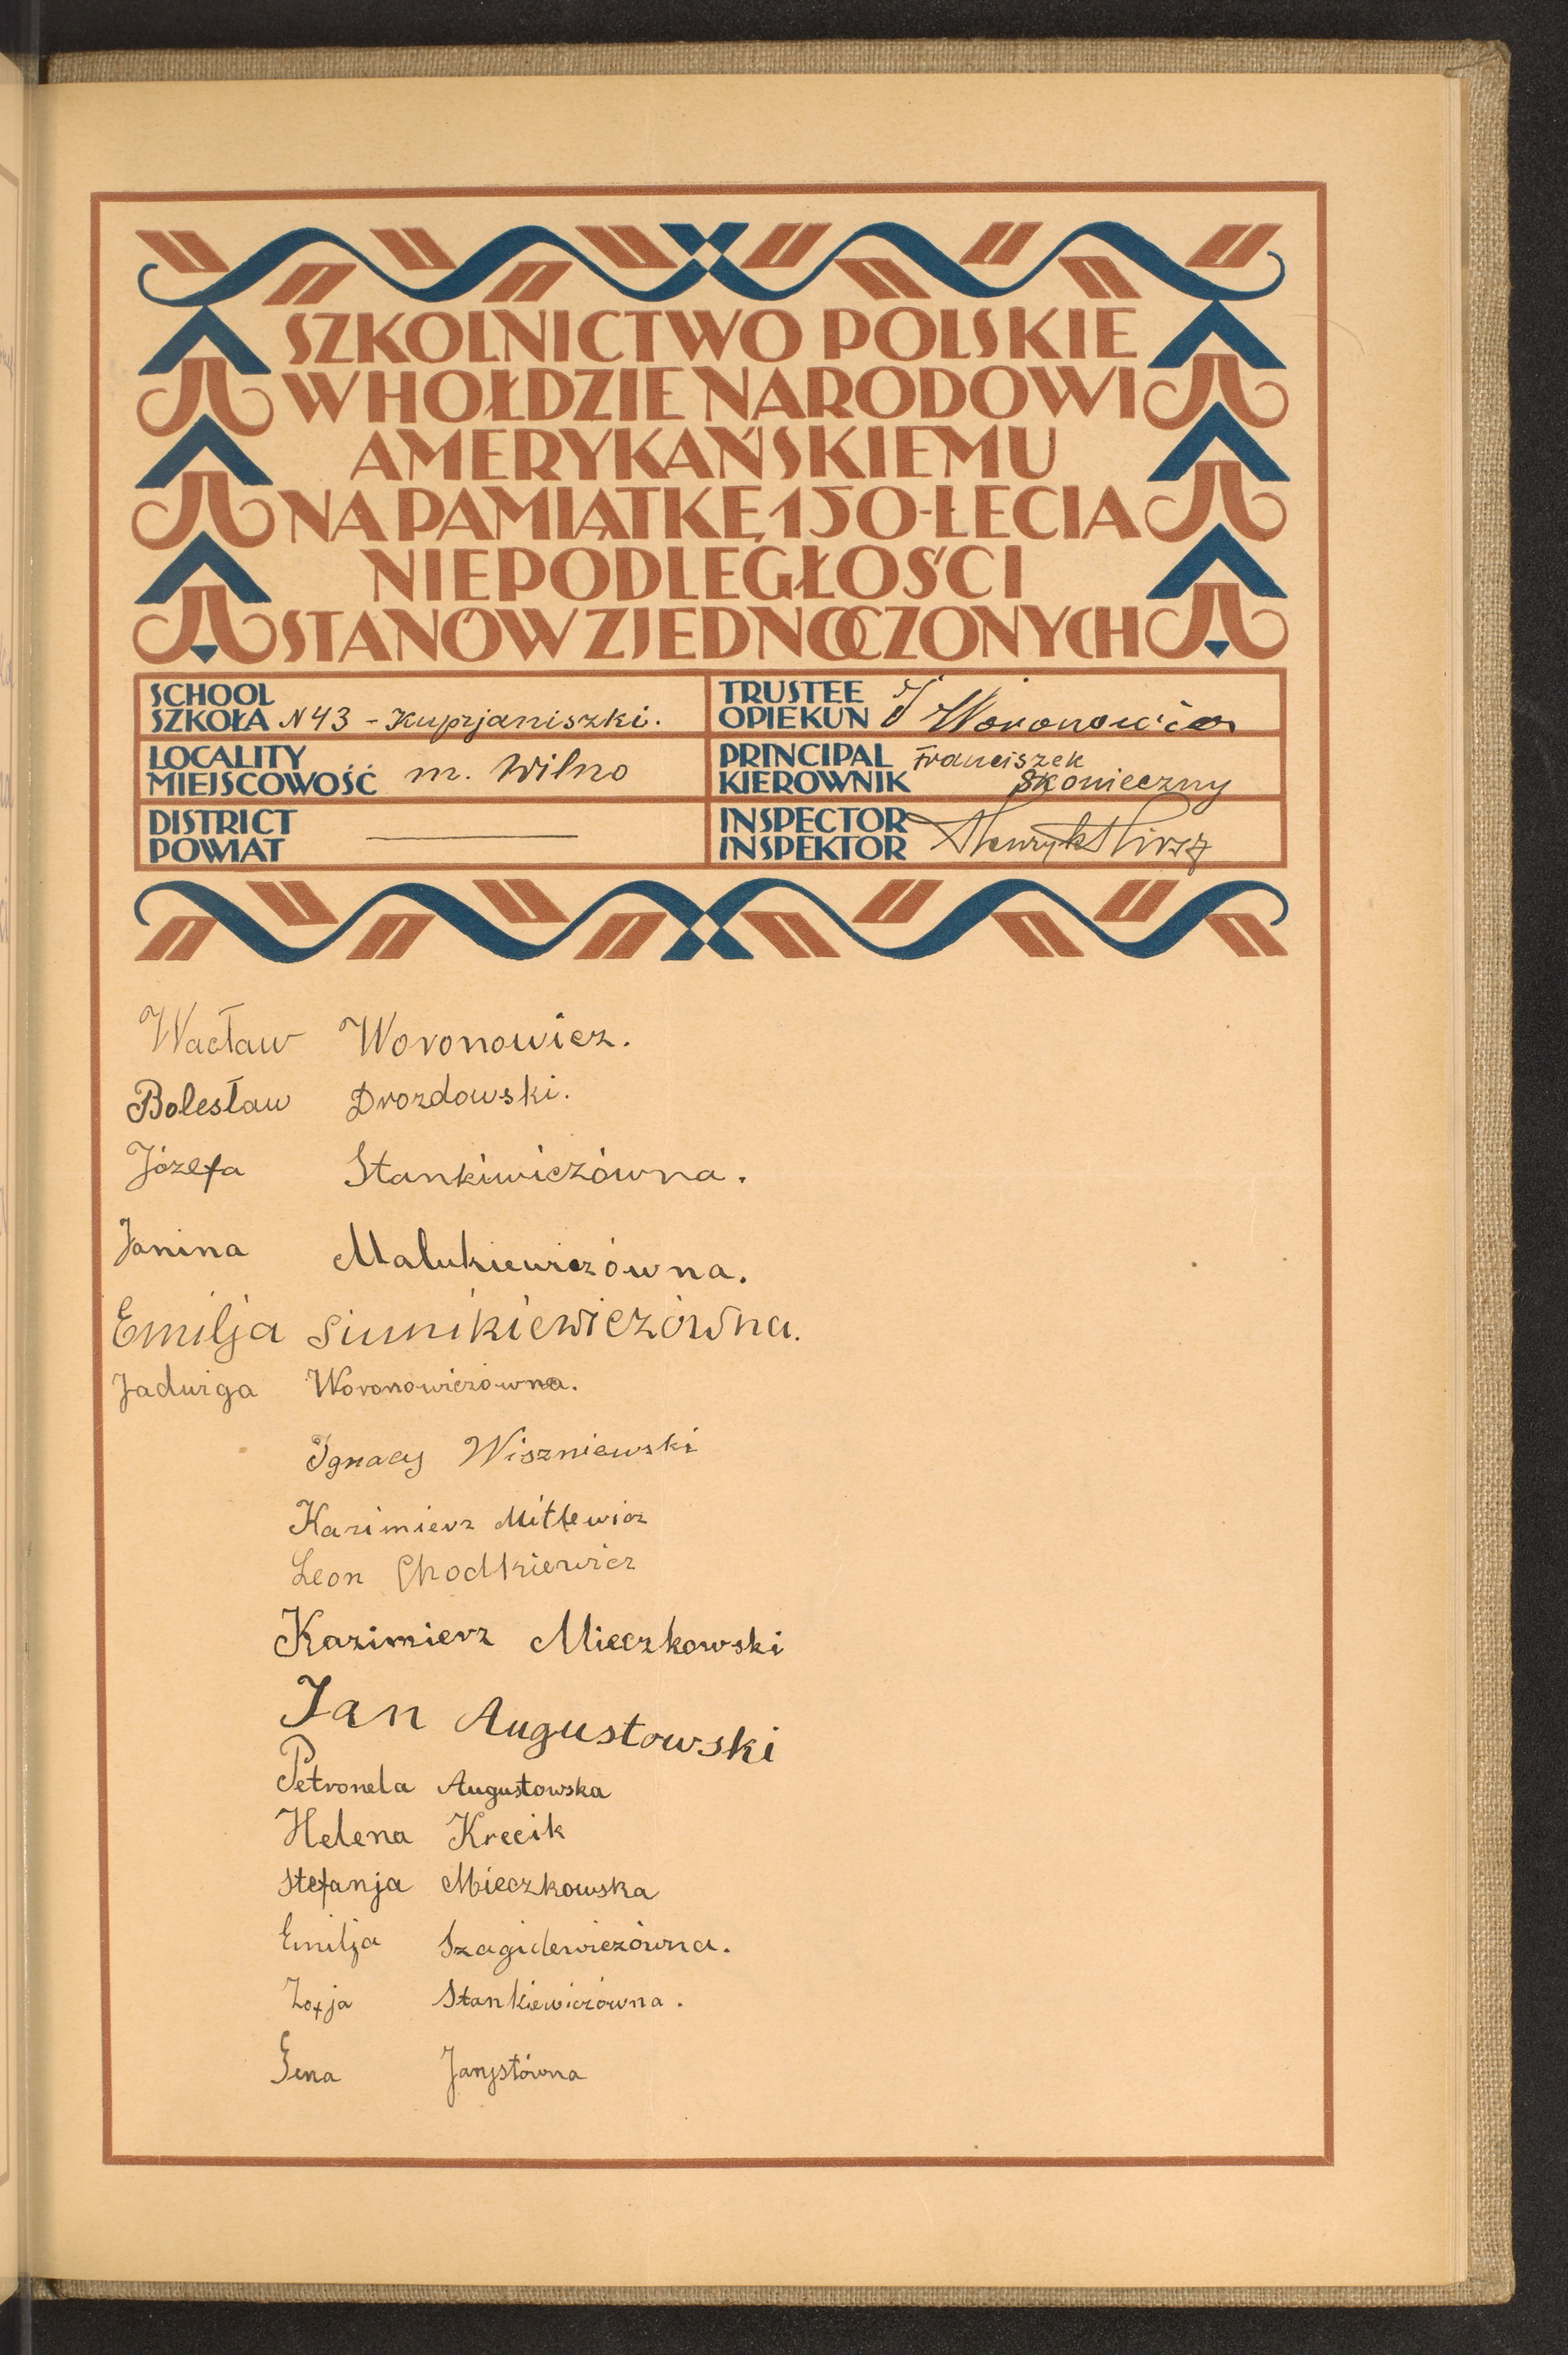 SZKOLNICTWO POLSKIE
W HOŁDZIE NARODOWI
AMERYKAŃSKIEMU
NA PAMIĄTKĘ 150-LECIA
NIEPODLEGŁOŚCI
STANÓW ZJEDNOCZONYCH
SCHOOL
SZKOŁA N 43 - Kuprjaniszki.
TRUSTEE
OPIEKUN J Woronowicz
LOCALITY
MIEJSCOWOŚĆ m. Wilno
PRINCIPAL Franciszek
KIEROWNIK Skonieczny
DISTRICT
POWIAT
INSPECTOR
INSPEKTOR Henryk
Wacław Woronowicz.
Bolesław Drozdowski.
Józefa Stankiwiczówna.
Janina Malukiewiczówna.
Emilja Siunikiewiczówna.
Jadwiga Woronowiczówna.
Ignacy Wiszniewski
Kazimierz Mitlewicz
Leon Chodkiewicz
Kazimierz Mieczkowski
Jan Augustowski
Petronela Augustowska
Helena Krecik
Stefanja Mieczkowska
Emilja Szagidewiczówna.
Zofja Stankiewiczówna.
Gena